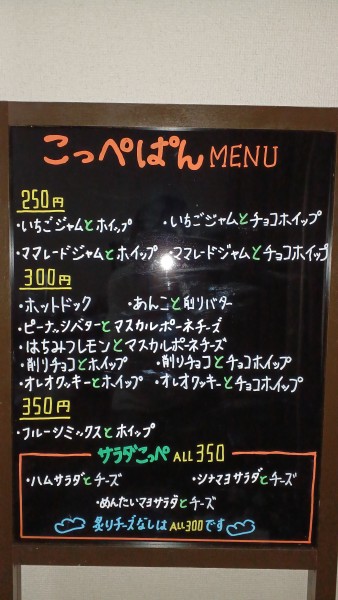 こっぺぱん MENU
250円
・いちごジャムとホイップ ・いちごジャムとチョコホイップ
・ママレードジャムとホイップ ・ママレードジャムとチョコホイップ
300円
・ホットドック ・あんこと削りバター
・ピーナッツバターとマスカルポーネチーズ
・はちみつレモンとマスカルポーネチーズ
・削りチョコとホイップ ・削りチョコとチョコホイップ
・オレオクッキーとホイップ ・オレオクッキーとチョコホイップ
350円
・フルーツミックスとホイップ
サラダこっぺ ALL 350
・ハムサラダとチーズ ・シナマヨサラダとチーズ
・めんたいマヨサラダとチーズ
炙りチーズなしは ALL 300 です